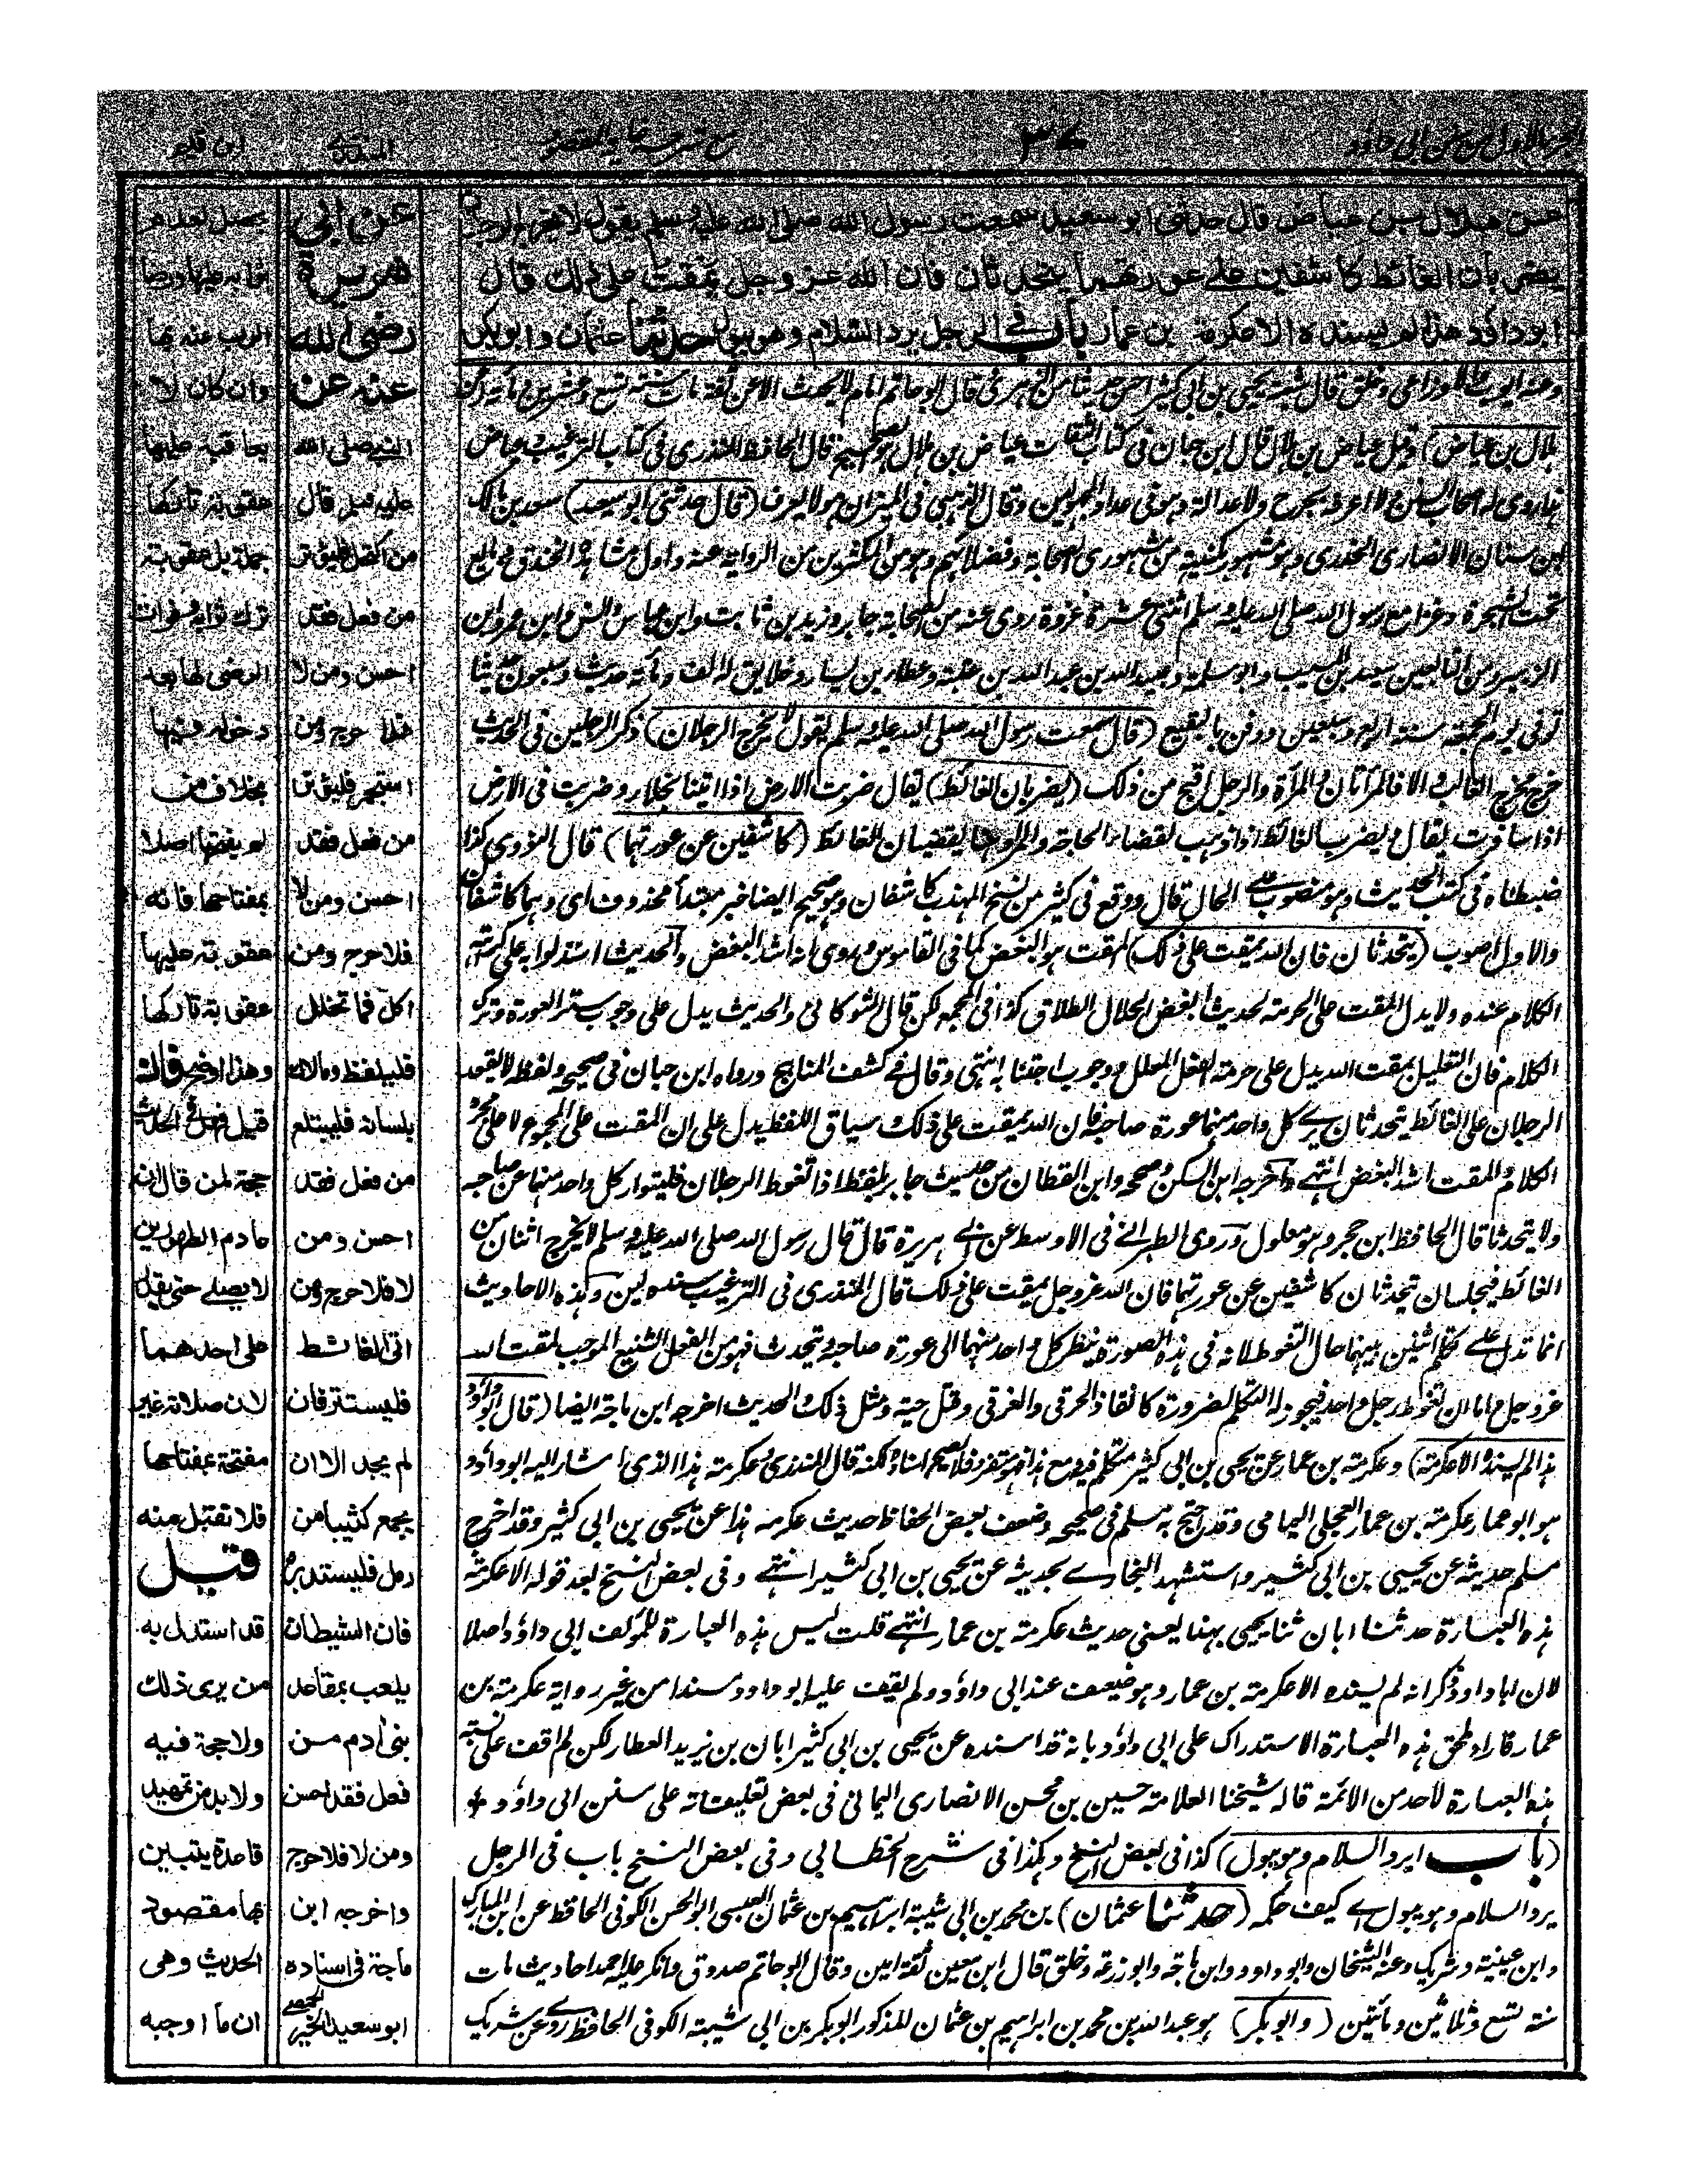 الجزء الاول من سنن ابى داؤد
مع شرحه غاية المقصود
المنذرى
ابن قيم
عن هلال بن عياض قال حدثنى ابو سعيد سمعت رسول الله صلى الله عليه وسلم يقول لا يخرج الرجلان
يضربان الغائط كاشفين عن عورتهما يتحدثان فان الله عز وجل يمقت على ذلك قال
ابو داؤد هذا لم يسنده الا عكرمة بن عمار باب فى الرجل يرد السلام وهو يبول حدثنا عثمان وابو بكر
هلال بن عياض) وقيل عياض بن هلال قال ابن حبان فى كتاب الثقات عياض بن هلال هو الصحيح قال الحافظ المنذرى فى كتاب الترغيب عياض
هذا روى له اصحاب السنن ولا اعرفه بجرح ولا عدالة وهو فى عداد المجهولين وقال الذهبى فى الميزان هو لا يعرف (قال حدثنى ابو سعيد) سعد بن مالك
ابن سنان الانصارى الخدرى وهو مشهور بكنيته من مشهورى الصحابة وفضلائهم وهو من المكثرين من الرواية عنه واول مشاهده الخندق وبايع
تحت الشجرة وغزا مع رسول الله صلى الله عليه وسلم اثنتى عشرة غزوة روى عنه من الصحابة جابر وزيد بن ثابت وابن عباس وانس وابن عمر وابن
الزبير ومن التابعين سعيد بن المسيب وابو سلمة وعبيد الله بن عبد الله بن عتبة وعطاء بن يسار وخلايق له الف ومائة حديث وسبعون حديثا
توفى يوم الجمعة سنة اربع وسبعين ودفن بالبقيع (قال سمعت رسول الله صلى الله عليه وسلم يقول لا يخرج الرجلان) ذكر الرجلين فى الحديث
خرج مخرج الغالب والا فالمرأتان والمرأة والرجل اقبح من ذلك (يضربان الغائط) يقال ضربت الارض اذا اتيت الخلاء وضربت فى الارض
اذا سافرت يقال يضرب الغائط اذا ذهب لقضاء الحاجة والمراد هنا يقضيان الغائط (كاشفين عن عورتهما) قال النووى كذا
ضبطناه فى كتب الحديث وهو منصوب على الحال قال ووقع فى كثير من نسخ المهذب كاشفان وهو صحيح ايضا خبر مبتدأ محذوف اى وهما كاشفان
والاول اصوب (يتحدثان فان الله يمقت على ذلك) المقت هو البغض كما فى القاموس وروى انه اشد البغض والحديث استدلوا به على كراهة
الكلام عنده ولا يدل المقت على الحرمة لحديث ابغض الحلال الطلاق كذا فى المجمع لكن قال الشوكانى والحديث يدل على وجوب ستر العورة وترك
الكلام فان التعليل بمقت الله يدل على حرمة الفعل المعلل ووجوب اجتنابه انتهى وقال فى كشف المناهج ورواه ابن حبان فى صحيحه ولفظه لا يقعد
الرجلان على الغائط يتحدثان يرى كل واحد منهما عورة صاحبه فان الله يمقت على ذلك سياق اللفظ يدل على ان المقت على المجموع لا على مجرد
الكلام والمقت اشد البغض انتهى واخرجه ابن السكن وصححه وابن القطان من حديث جابر بلفظ اذا تغوط الرجلان فليتوار كل واحد منهما عن صاحبه
ولا يتحدثا قال الحافظ ابن حجر وهو معلول وروى الطبرانى فى الاوسط عن ابى هريرة قال قال رسول الله صلى الله عليه وسلم لا يخرج اثنان من
الغائط فيجلسان يتحدثان كاشفين عن عورتهما فان الله عز وجل يمقت على ذلك قال المنذرى فى الترغيب سنده لين وهذه الاحاديث
انما تدل على تكلم اثنين بينهما حال التغوط لانه فى هذه الصورة ينظر كل واحد منهما الى عورة صاحبه ويتحدث فهو من الفعل الشنيع الموجب لمقت الله
عز وجل واما ان تغوط رجل واحد فيجوز له التكلم لضرورة كانقاذ الحرقى والغرقى وقتل حية ومثل ذلك والحديث اخرجه ابن ماجة ايضا (قال ابو داؤد
هذا لم يسنده الا عكرمة) وعكرمة بن عمار عن يحيى بن ابى كثير متكلم فيه ومع هذا هو متفرد فلا يصح اسناده لكنه قال المنذرى وعكرمة هذا الذى اشار اليه ابو داؤد
هو ابو عمار عكرمة بن عمار العجلى اليمامى وقد احتج به مسلم فى صحيحه وضعف بعض الحفاظ حديث عكرمه هذا عن يحيى بن ابى كثير وقد اخرج
مسلم حديثه عن يحيى بن ابى كثير واستشهد البخارى بحديثه عن يحيى بن ابى كثير انتهى وفى بعض النسخ بعد قوله الا عكرمة
هذه العبارة حدثنا ابان ثنا يحيى بهذا يعنى حديث عكرمة بن عمار انتهى قلت ليس هذه العبارة للمؤلف ابى داؤد اصلا
لان ابا داود ذكر انه لم يسنده الا عكرمة بن عمار وهو ضعيف عند ابى داؤد ولم يقف عليه ابو داود مسندا من غير رواية عكرمة بن
عمار فاراد ملحق هذه العبارة الاستدراك على ابى داؤد بانه قد اسنده عن يحيى بن ابى كثير ابان بن يزيد العطار لكن لم اقف على نسبة
هذه العبارة لاحد من الائمة قاله شيخنا العلامة حسين بن محسن الانصارى اليمانى فى بعض تعليقاته على سنن ابى داؤد
(باب ايرد السلام وهو يبول) كذا فى بعض النسخ وهكذا فى شرح الخطابى وفى بعض النسخ باب فى الرجل
يرد السلام وهو يبول اى كيف حكمه (حدثنا عثمان) بن محمد بن ابى شيبة ابراهيم بن عثمان العبسى ابو الحسن الكوفى الحافظ عن ابن المبارك
وابن عيينة وشريك وعنه الشيخان وابو داود وابن ماجه وابو زرعة وخلق قال ابن معين ثقة امين وقال ابو حاتم صدوق وانكر عليه احمد احاديث مات
سنة تسع وثلاثين ومائتين (وابو بكر) هو عبد الله بن محمد بن ابراهيم بن عثمان المذكور ابو بكر بن ابى شيبة الكوفى الحافظ روى عن شريك
عن ابى
هريرة
رضى الله
عنه عن
النبى صلى الله
عليه وسلم قال
من اكتحل فليوتر
من فعل فقد
احسن ومن لا
فلا حرج ومن
استجمر فليوتر
من فعل فقد
احسن ومن لا
فلا حرج ومن
اكل فما تخلل
فليلفظ وما لاك
بلسانه فليبتلع
من فعل فقد
احسن ومن
لا فلا حرج ومن
اتى الغائط
فليستتر فان
لم يجد الا ان
يجمع كثيبا من
رمل فليستدبره
فان الشيطان
يلعب بمقاعد
بنى ادم من
فعل فقد احسن
ومن لا فلا حرج
واخرجه ابن
ماجة فى اسناده
ابو سعيد الخير الحمصى
وان كان لا
يعاقبه عليها
عقوبة تاركها
جملة بل عقوبته
ترك ثوابه فوات
الرضى لها بعد
دخوله فيها
بخلاف من
لم يفتحها اصلا
بمفتاحها فانه
عقوبته عليها
عقوبة تاركها
وهذا اوضح فان
قيل فهل فى الحديث
حجة لمن قال ان
عادم الطهورين
لا يصلى حتى يقدر
على احدهما
لان صلاته غير
مفتتحة بمفتاحها
فلا تقبل منه
قيل
قد استدل به
من يرى ذلك
ولا حجة فيه
ولا بد من تمهيد
قاعدة يتبين
بها مقصود
الحديث وهى
ان ما اوجبه